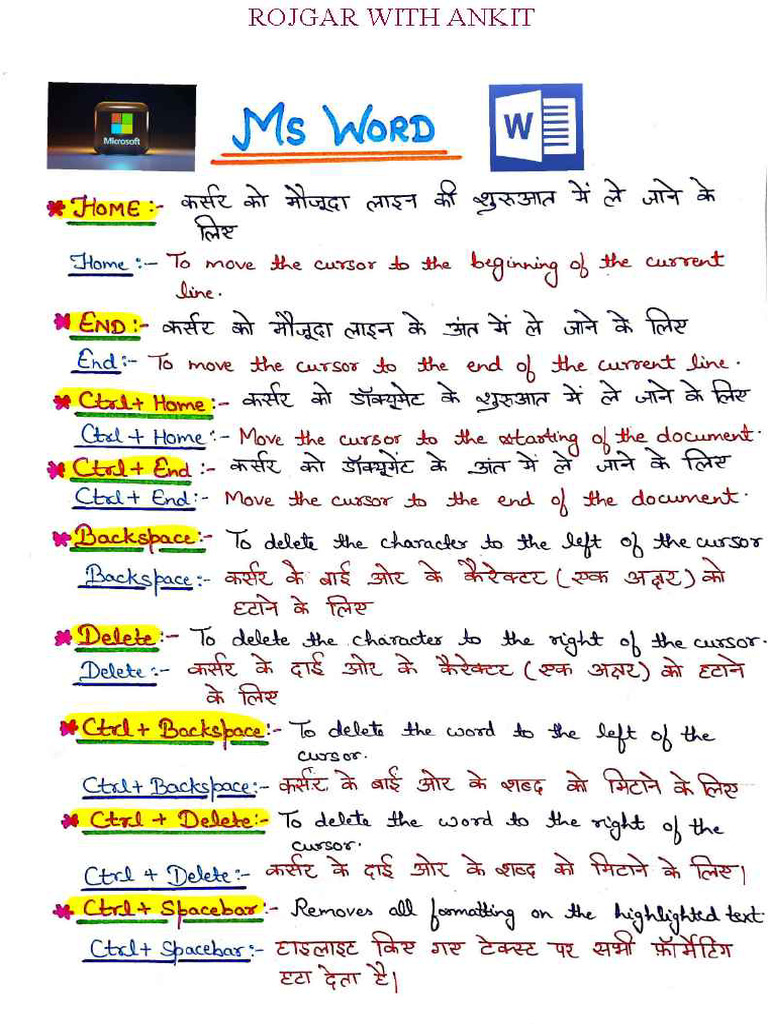 ROJGAR WITH ANKIT
Microsoft
MS WORD
W
HOME:- कर्सर को मौजूदा लाइन की शुरुआत में ले जाने के
लिए
Home:- To move the cursor to the beginning of the current
line.
END:- कर्सर को मौजूदा लाइन के अंत में ले जाने के लिए
End:- To move the cursor to the end of the current line.
Ctrl+ Home:- कर्सर को डॉक्यूमेंट के शुरुआत में ले जाने के लिए
Ctrl + Home:- Move the cursor to the starting of the document.
Ctrl + End:- कर्सर को डॉक्यूमेंट के अंत में ले जाने के लिए
Ctrl + End:- Move the cursor to the end of the document.
Backspace:- To delete the character to the left of the cursor
Backspace:- कर्सर के बाई ओर के कैरेक्टर (एक अक्षर) को
हटाने के लिए
Delete:- To delete the character to the right of the cursor.
Delete:- कर्सर के दाई ओर के कैरेक्टर (एक अक्षर) को हटाने
के लिए
Ctrl + Backspace:- To delete the word to the left of the
cursor.
Ctrl+ Backspace:- कर्सर के बाई ओर के शब्द को मिटाने के लिए
Ctrl + Delete:- To delete the word to the right of the
cursor.
Ctrl + Delete:- कर्सर के दाई ओर के शब्द को मिटाने के लिए।
Ctrl+ Spacebar:- Removes all formatting on the highlighted text.
Ctrl+ Spacebar:- हाइलाइट किए गए टेक्स्ट पर सभी फ़ॉर्मेटिंग
हटा देता है।